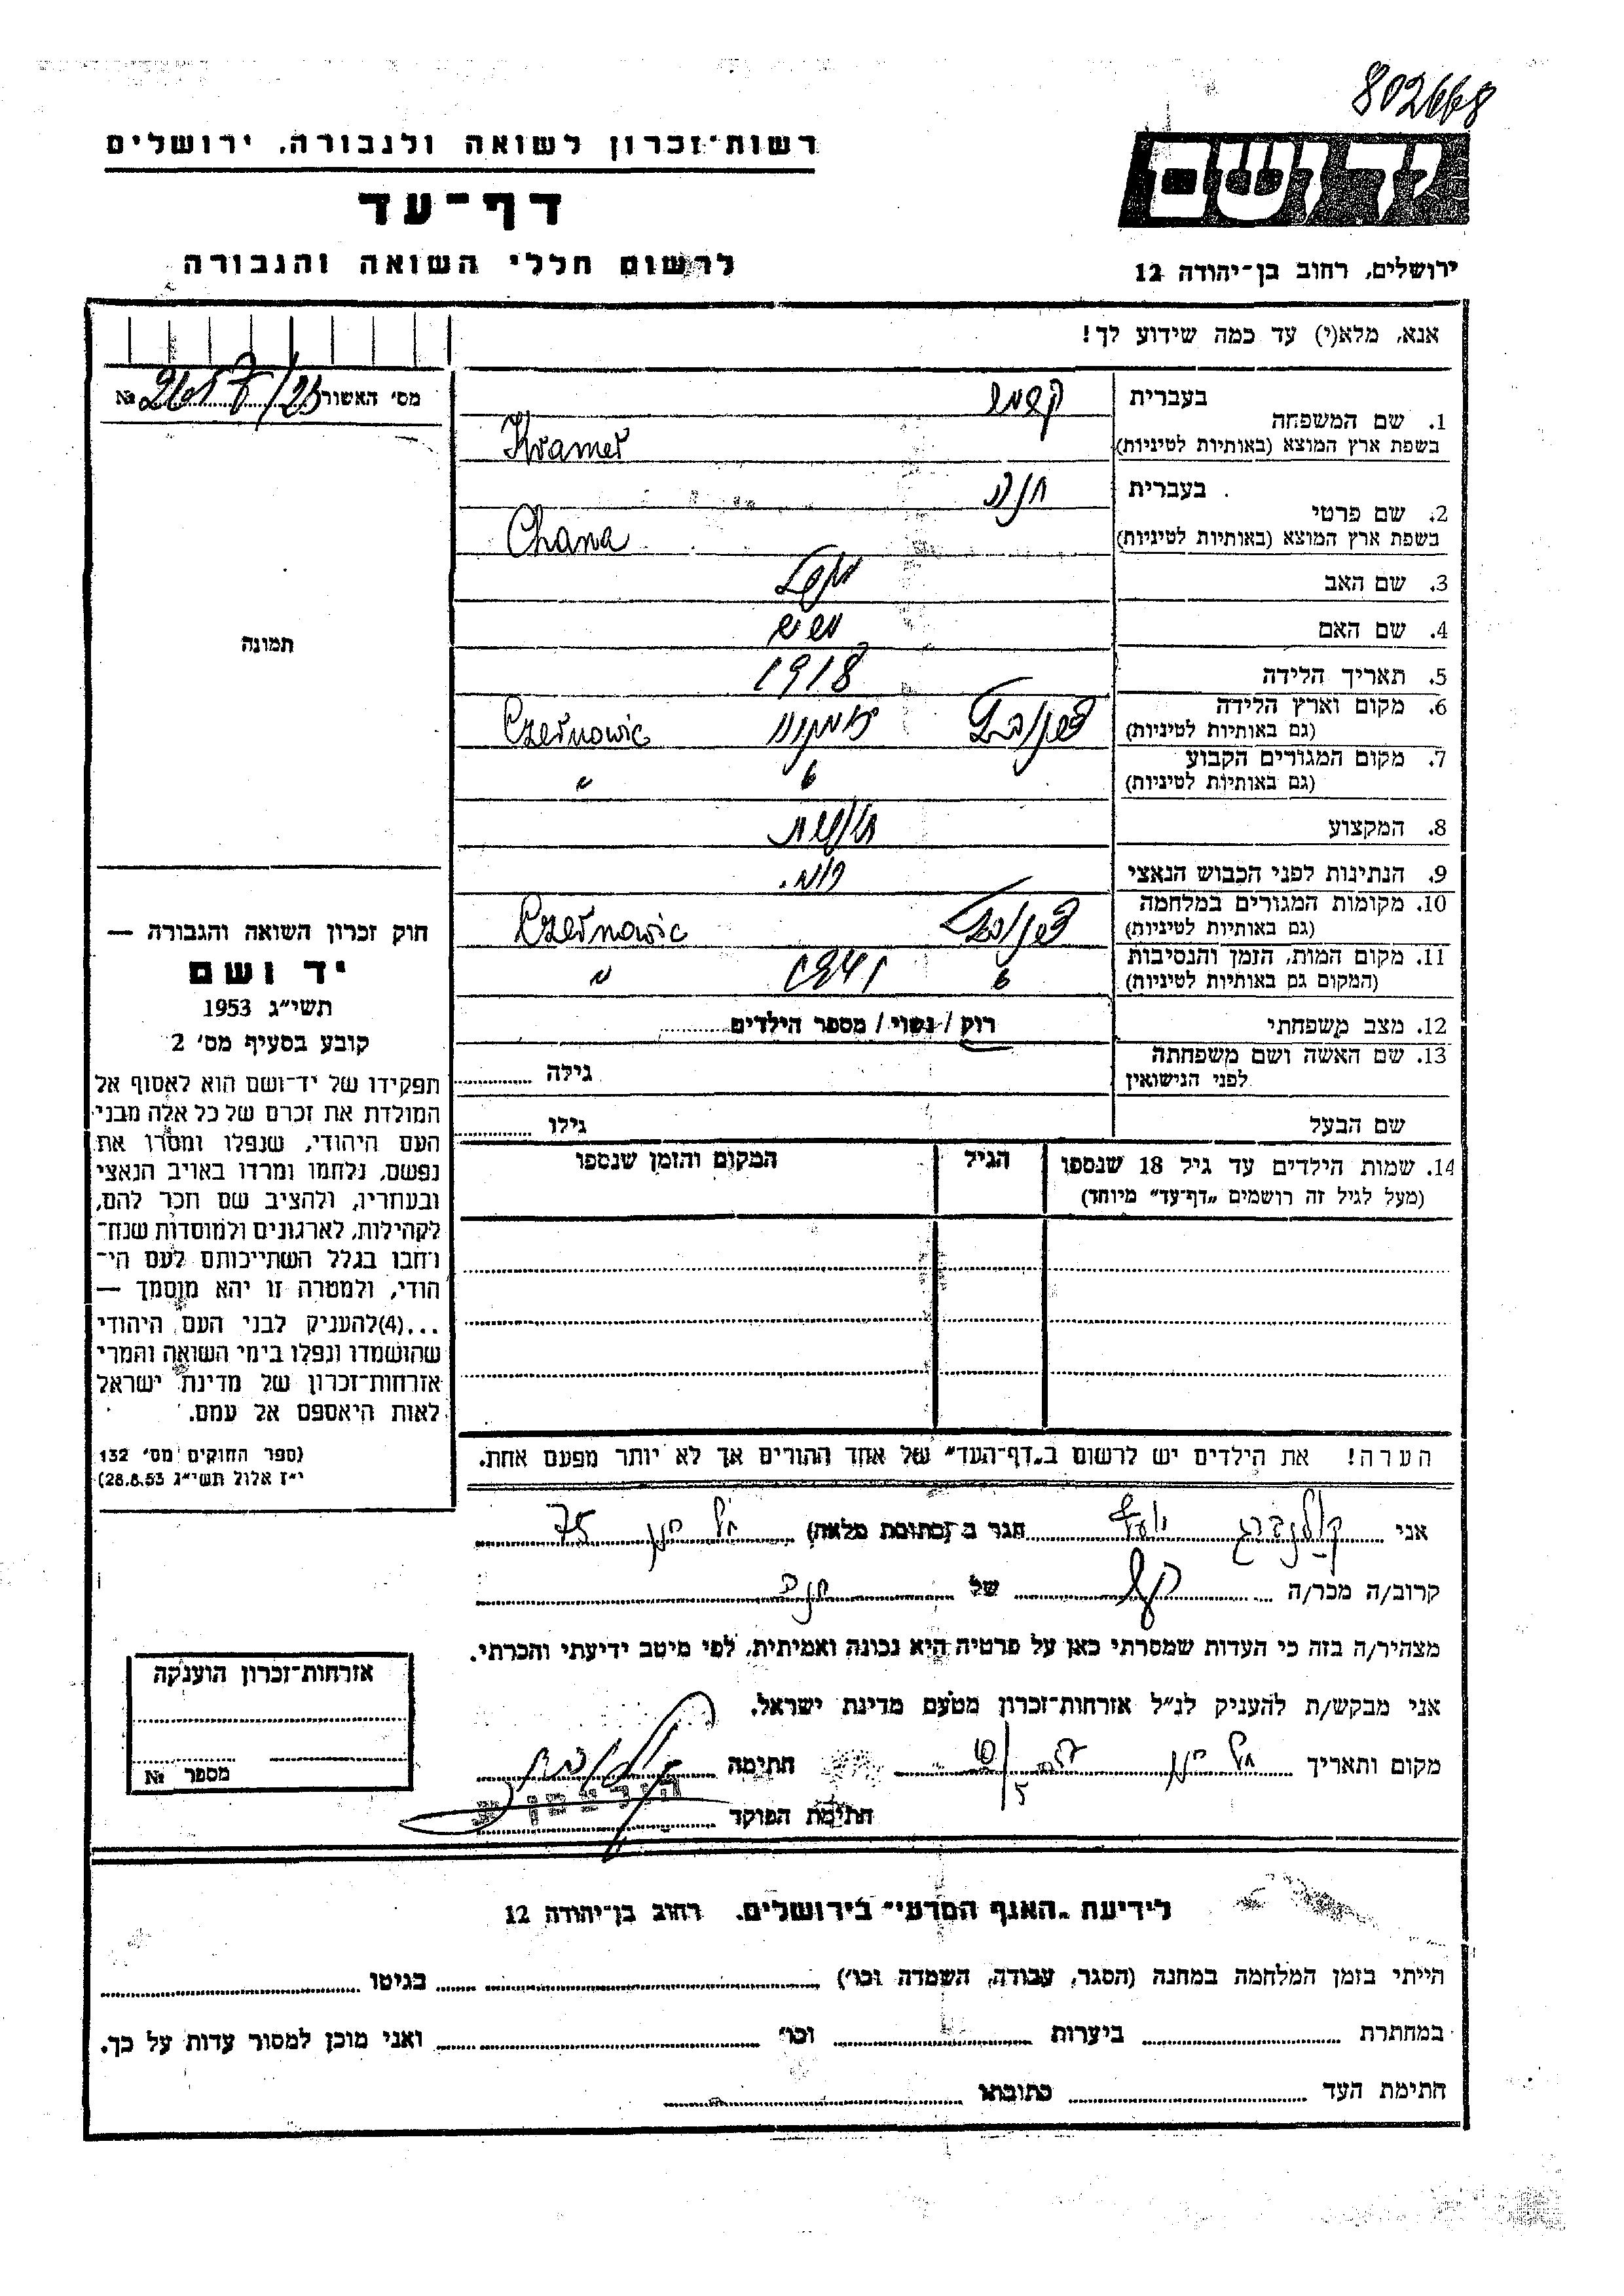 802668
רשות־זכרון לשואה ולגבורה, ירושלים
יד ושם
דף־עד
לרשום חללי השואה והגבורה
ירושלים, רחוב בן־יהודה 12
אנא, מלא(י) עד כמה שידוע לך!
מס׳ האשור №
1. שם המשפחה
בעברית קרמר
בשפת ארץ המוצא (באותיות לטיניות) Kramer
2. שם פרטי
בעברית חנה
בשפת ארץ המוצא (באותיות לטיניות) Chana
3. שם האב
4. שם האם
5. תאריך הלידה 1918
6. מקום וארץ הלידה
(גם באותיות לטיניות) Czernowic
7. מקום המגורים הקבוע
(גם באותיות לטיניות) " "
8. המקצוע
9. הנתינות לפני הכבוש הנאצי רומ.
10. מקומות המגורים במלחמה
(גם באותיות לטיניות) Czernowic
11. מקום המות, הזמן והנסיבות
(המקום גם באותיות לטיניות) " 1941 "
12. מצב משפחתי רוק / נשוי / מספר הילדים
13. שם האשה ושם משפחתה
לפני הנישואין גילה
שם הבעל גילו
14. שמות הילדים עד גיל 18 שנספו הגיל המקום והזמן שנספו
(מעל לגיל זה רושמים „דף־עד” מיוחד)
תמונה
חוק זכרון השואה והגבורה —
יד ושם
תשי״ג 1953
קובע בסעיף מס׳ 2
תפקידו של יד־ושם הוא לאסוף אל
המולדת את זכרם של כל אלה מבני
העם היהודי, שנפלו ומסרו את
נפשם, נלחמו ומרדו באויב הנאצי
ובעוזריו, ולהציב שם וזכר להם,
לקהילות, לארגונים ולמוסדות שנח־
רחבו בגלל השתייכותם לעם הי־
הודי, ולמטרה זו יהא מוסמך —
...(4)להעניק לבני העם היהודי
שהושמדו ונפלו בימי השואה והמרי
אזרחות־זכרון של מדינת ישראל
לאות היאספם אל עמם.
(ספר החוקים מס׳ 132
י״ז אלול תשי״ג 28.8.53)
הערה! את הילדים יש לרשום ב„דף־העד” של אחד ההורים אך לא יותר מפעם אחת.
אני הגר ב (כתובת מלאה) 75
קרוב/ה מכר/ה של חנה
מצהיר/ה בזה כי העדות שמסרתי כאן על פרטיה היא נכונה ואמיתית, לפי מיטב ידיעתי והכרתי.
אני מבקש/ת להעניק לנ״ל אזרחות־זכרון מטעם מדינת ישראל.
מקום ותאריך חתימה
חתימת הפוקד
אזרחות־זכרון הוענקה
מספר №
לידיעת „האגף המדעי” בירושלים, רחוב בן־יהודה 12
הייתי בזמן המלחמה במחנה (הסגר, עבודה, השמדה וכו׳) בגיטו
במחתרת ביערות וכו׳ ואני מוכן למסור עדות על כך.
חתימת העד כתובתו